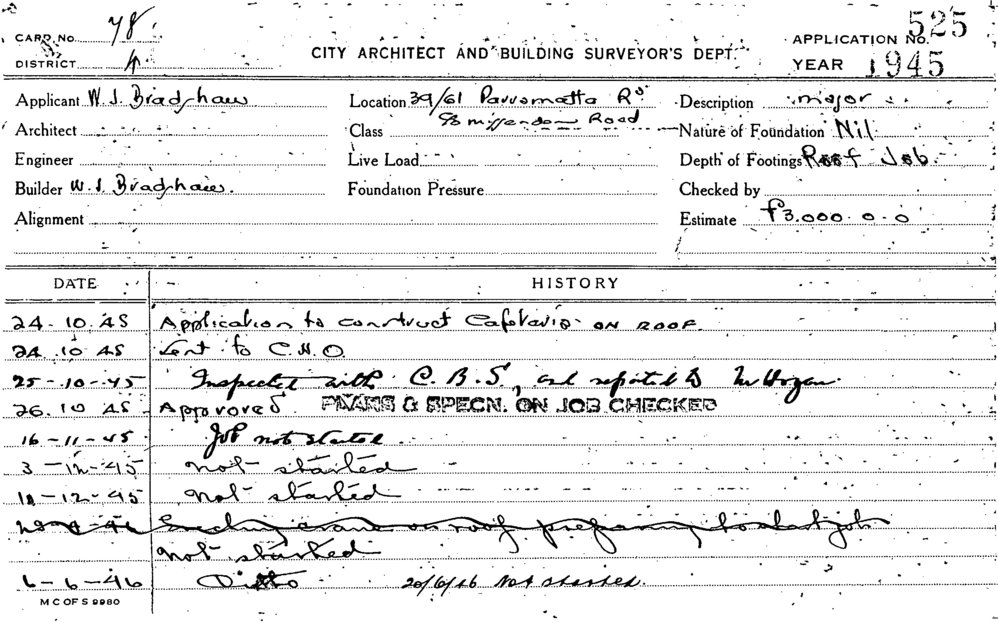 CARD No. 78.
DISTRICT 4
CITY ARCHITECT AND BUILDING SURVEYOR'S DEPT.
APPLICATION No. 525
YEAR 1945
Applicant W. J. Bradshaw
Location 39/61 Parramatta Rd
Description major
Architect
Class 98 missenden Road
Nature of Foundation Nil
Engineer
Live Load
Depth of Footings Roof Job.
Builder W. J. Bradshaw.
Foundation Pressure
Checked by
Alignment
Estimate £3.000.0.0
DATE HISTORY
24.10.45 Application to construct Cafetaria on roof
24.10.45 Sent to C.H.O.
25-10-45 Inspected with C.B.S, and reported to Mr Hogan.
26.10.45 Approved PLANS & SPECN. ON JOB CHECKED
16-11-45 Job not started
3-12-45 not started
12-45 not started
Erecting crane on roof preparing to start job
not started
6-6-46 Ditto 20/6/46 Not started.
M C OF S 9980